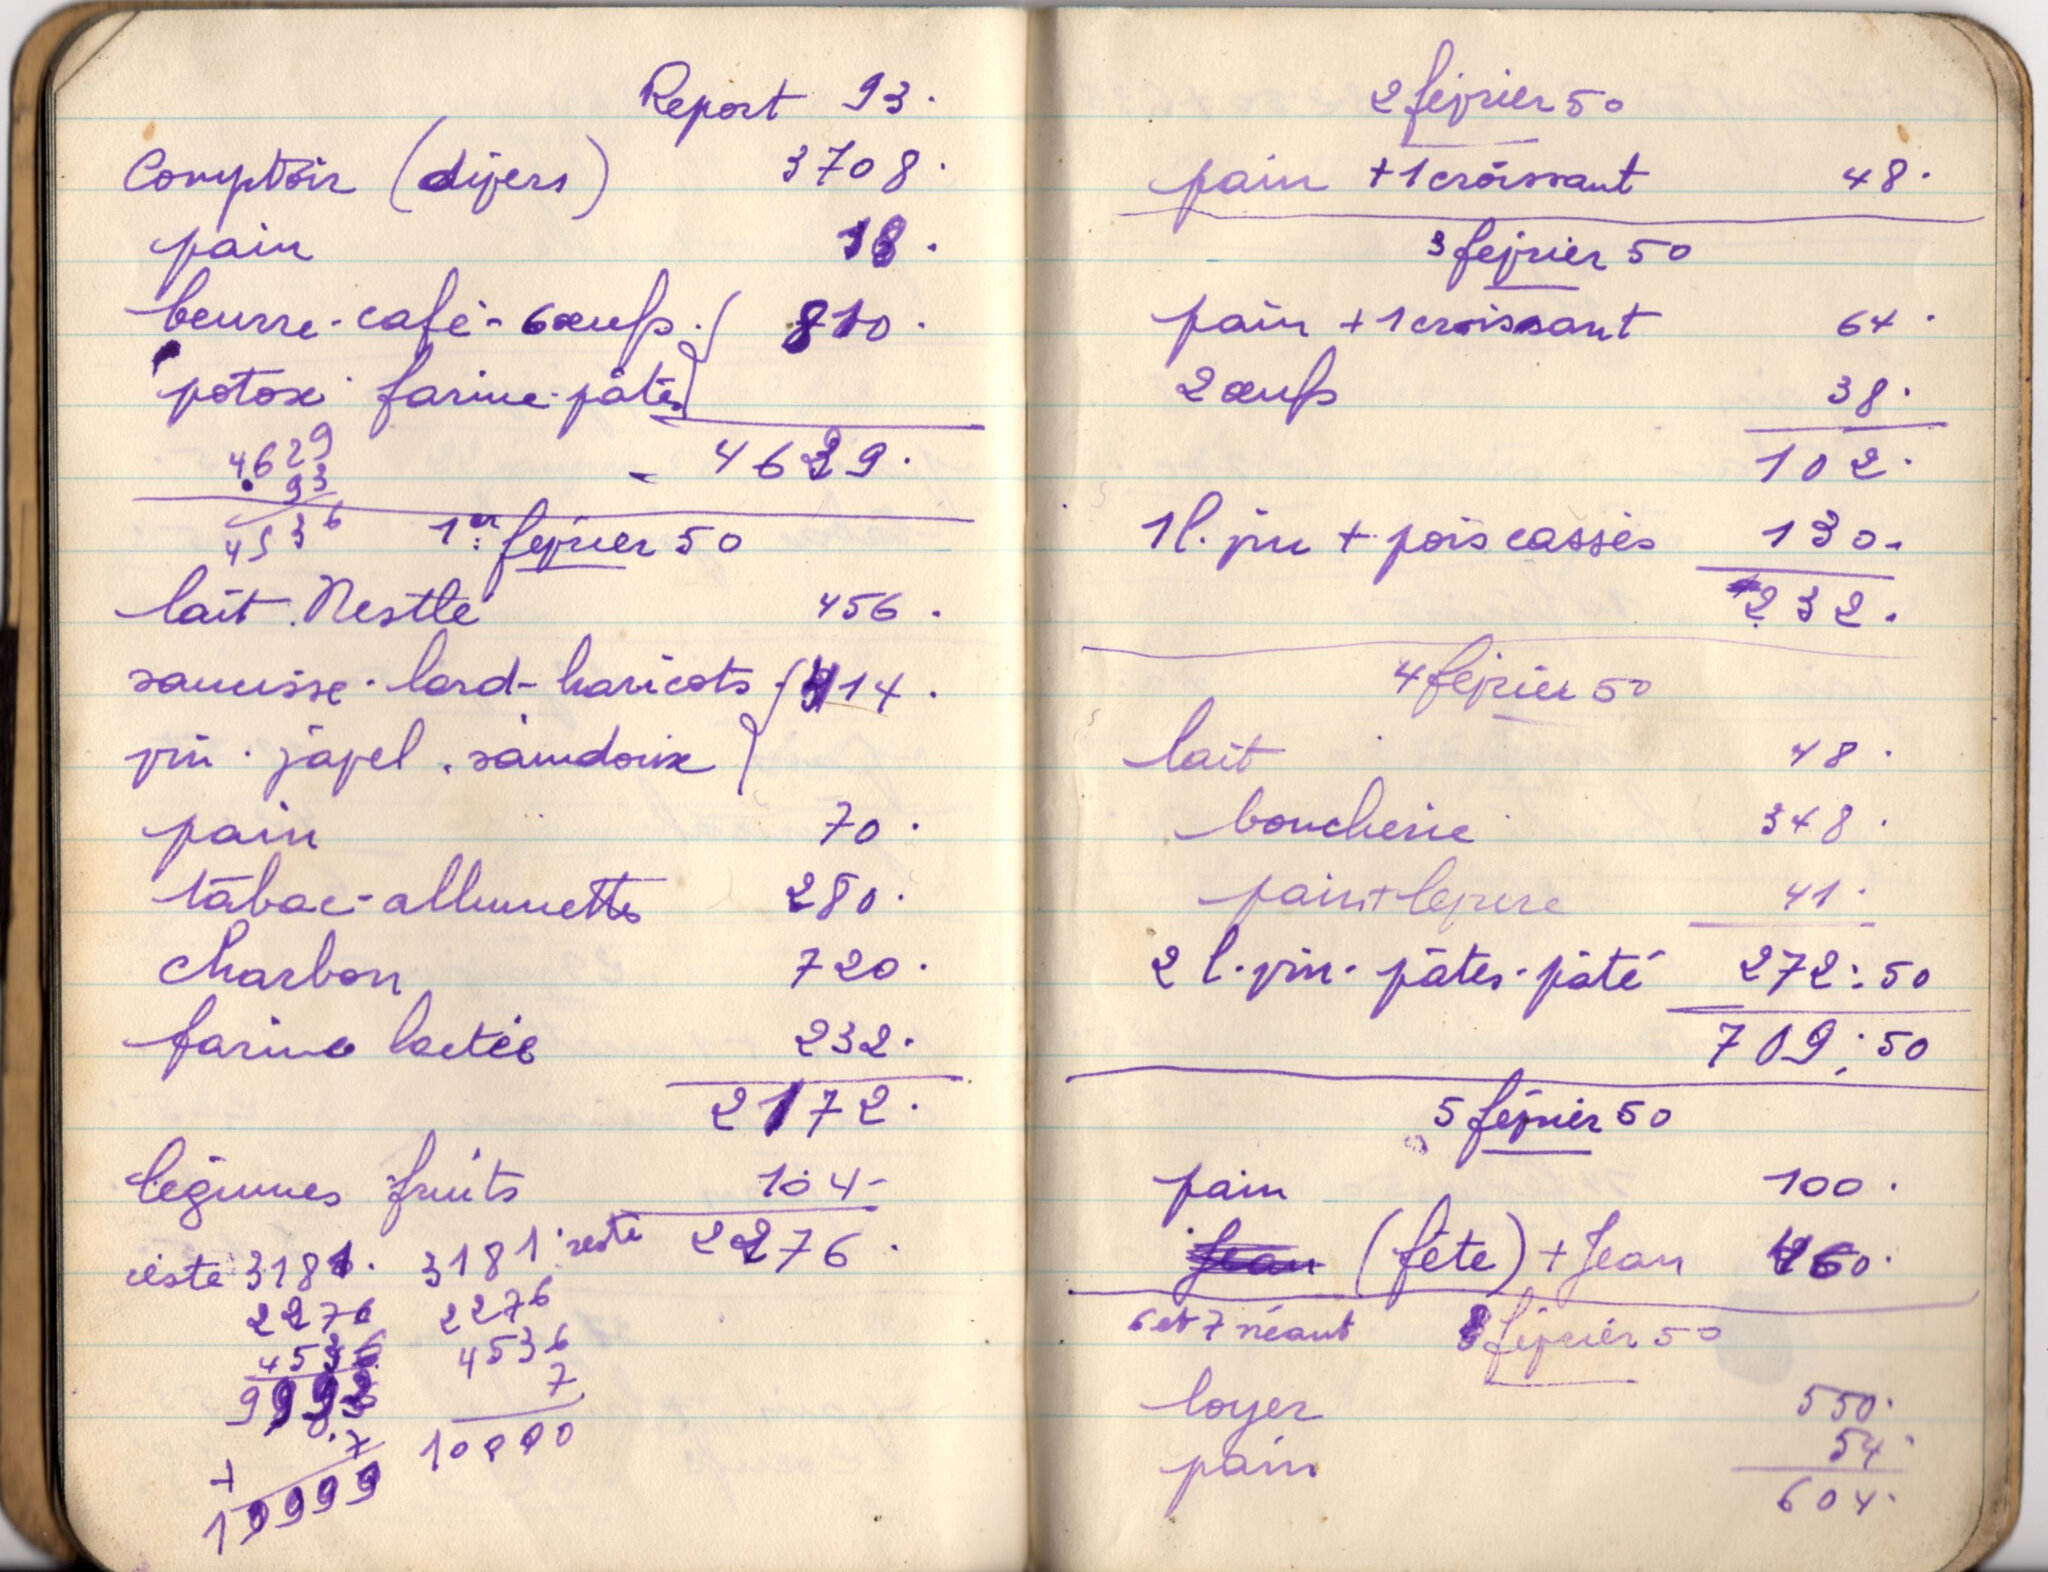 Report 93.
Comptoir (divers) 3708.
pain 18.
beurre - café - 6 œufs. 810.
potox. farine - pâtes
4629.
4629
93
4536
1er février 50
lait. Nestlé 456.
saucisse - lard - haricots 414.
vin. javel. saindoux
pain 70.
tabac - allumettes 280.
charbon 720.
farine lactée 232.
2172.
légumes fruits 104-
2276.
reste 3181. 3181. reste
2276 2276
4536 4536
7
10000
7
+
2 février 50
pain + 1 croissant 48.
3 février 50
pain + 1 croissant 64.
2 œufs 38.
102.
1 l. vin + pois cassés 130-
232.
4 février 50
lait 48.
boucherie 348.
pain + levure 41.
2 l. vin. pâtes. pâté 272:50
709:50
5 février 50
pain 100.
Jean (fête) + Jean
6 et 7 néant 8 février 50
loyer 550.
pain 54.
604.